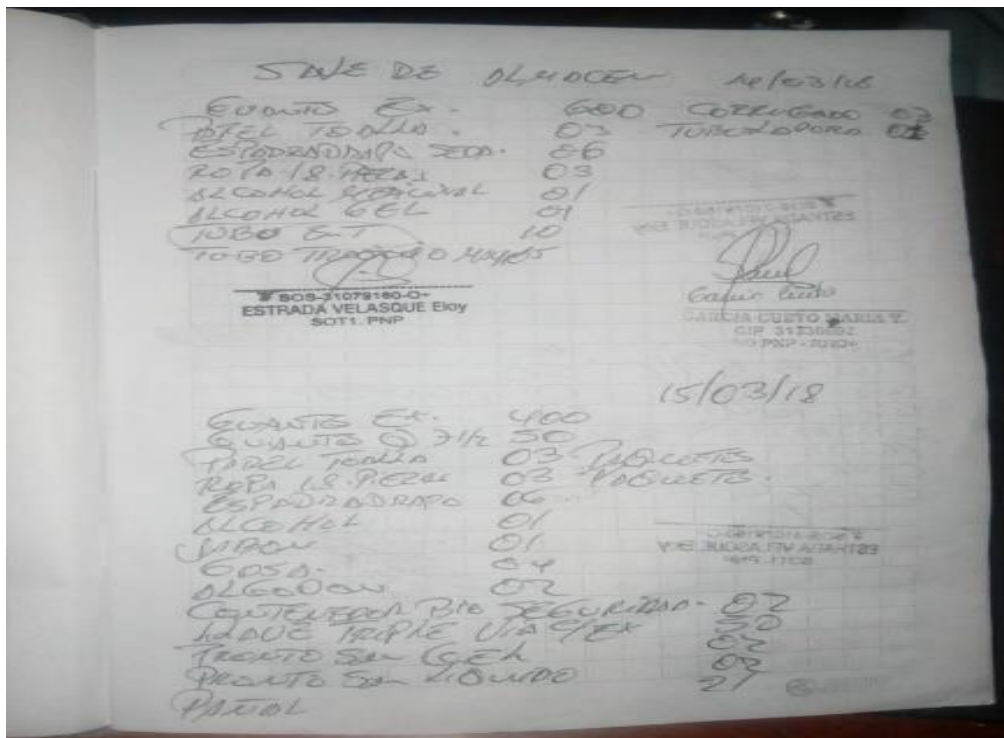 SALE DE ALMACEN 14/03/18
GUANTE Ex. 600 CORRUGADO 02
PAPEL TOALLA. 03
ESPADRADRAPO SEDA. 06
ROPA 18 PIEZAS 03
ALCOHOL MEDICINAL 01
ALCOHOL GEL 01
TUBO EnT 10
TUBO
ESTRADA VELASQUE Eloy
SOT1. PNP
GARCIA CUETO MARIA Y.
15/03/18
GUANTES Ex. 400
GUANTE Q 7 1/2 50
PAPEL TOALLA 03 PAQUETES
ROPA 18 PIEZAS 03 PAQUETES.
ESPADRADRAPO 06
ALCOHOL 01
JABON 01
GASA. 04
ALGODON 02
CONTENEDOR BIO SEGURIDAD. 02
LLAVE TRIPLE VIA C/Ex 50
PRONTO San GEL 02
PRONTO San LIQUIDO 02
PAÑAL 21